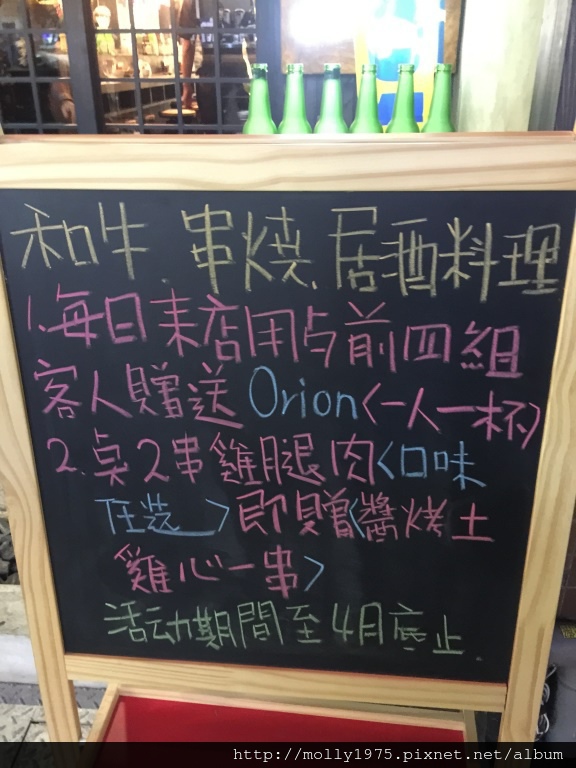 和牛、串燒、居酒料理
1.每日來店用与前四組
客人贈送Orion<一人一杯>
2.點2串雞腿肉<口味
任選>即贈<醬烤土
雞心一串>
活动期間至4月底止.
http://molly1975.pixnet.net/album